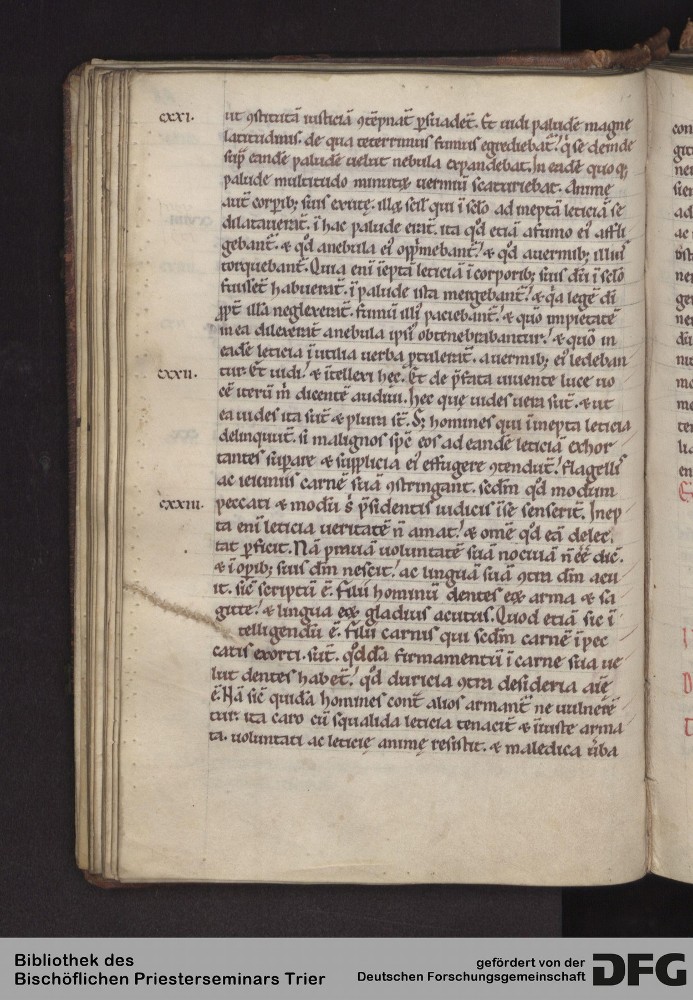 cxxi. ut ꝯstitutā iusticiā ꝯtēpnat̄ ꝑsuadet̄. Et uidi paludē magnę
latitudinis. de qua teterrimus fumus egrediebat̄. q̇ se deinde
sup̄ eandē paludē uelut nebula expandebat. In eadē quoq;
palude multitudo minutoꝝ uermiū scaturiebat. Animę
aūt corꝑib; suis exutę. illaꝝ scil' qui ī sc̄lo ad ineptā leticiā se
dilatauerāt. ī hac palude erāt. ita qd̄ etiā a fumo ei' affli
gebant̄. ⁊ qd̄ a nebula ei' opp̄mebant̄. ⁊ qd̄ a uermib; illius
torquebant̄. Quia eni īeptā leticiā ī corporib; suis dū ī sc̄lo
fuissēt habuerāt. ī palude ista mergebant̄. ⁊ q̇a legē di
ꝓpt̄ illā neglexerāt. fumū illi' paciebant̄. ⁊ quō impietatē
in ea dilexerāt a nebula ipsi' obtenebrabantur. ⁊ quō in
eadē leticia īutilia uerba ꝓtulerāt. a uermib; ei' ledeban
cxxii. tur. Et uidi. ⁊ ītellexi hec. Et de p̄fata uiuente luce uo
cē iterū m̄ dicentē audiui. Hec quę uides uera sūt. ⁊ ut
ea uides ita sūt ⁊ plura sт̄. S; homines qui ī inepta leticia
delinquūt. si malignos sp̄c eos ad eandē leticiā exhor
tantes supare ⁊ supplicia ei' effugere ꝯtendūt. flagellis
ac ieiuniis carnē suā ꝯstringant. sc̄dm qd̄ modum
cxxiii. peccati ⁊ modū s' p̄sidentis iudicis ī se senserīt. Inep
ta eni leticia ueritatē n̄ amat. ⁊ omē qd̄ eā delec
tat ꝑficit. Nā prauā uoluntatē suā nociuā n̄ ēē dic̄.
⁊ ī oꝑib; suis dm̄ nescit. ac linguā suā ꝯtra dm̄ acu
it. sic̄ scriptū ē. Filii hominū dentes eoꝝ arma ⁊ sa
gitte. ⁊ lingua eoꝝ gladius acutus. Quod etiā sic ī
telligendū ē. Filii carnis qui sc̄dm carnē ī pec
catis exorti sūt. qd̄dā firmamentū ī carne sua ue
lut dentes habēt. qd̄ duricia ꝯtra desideria aīe
ē. Nā sic̄ quidā homines cont̄ alios armant̄ ne uulnerē
tur. ita caro cū squalida leticia tenacit̄ ⁊ īiuste arma
ta. uoluntati ac leticię animę resistit. ⁊ maledica ūba
con
git
ne
Bibliothek des
Bischöflichen Priesterseminars Trier
gefördert von der
Deutschen Forschungsgemeinschaft
DFG